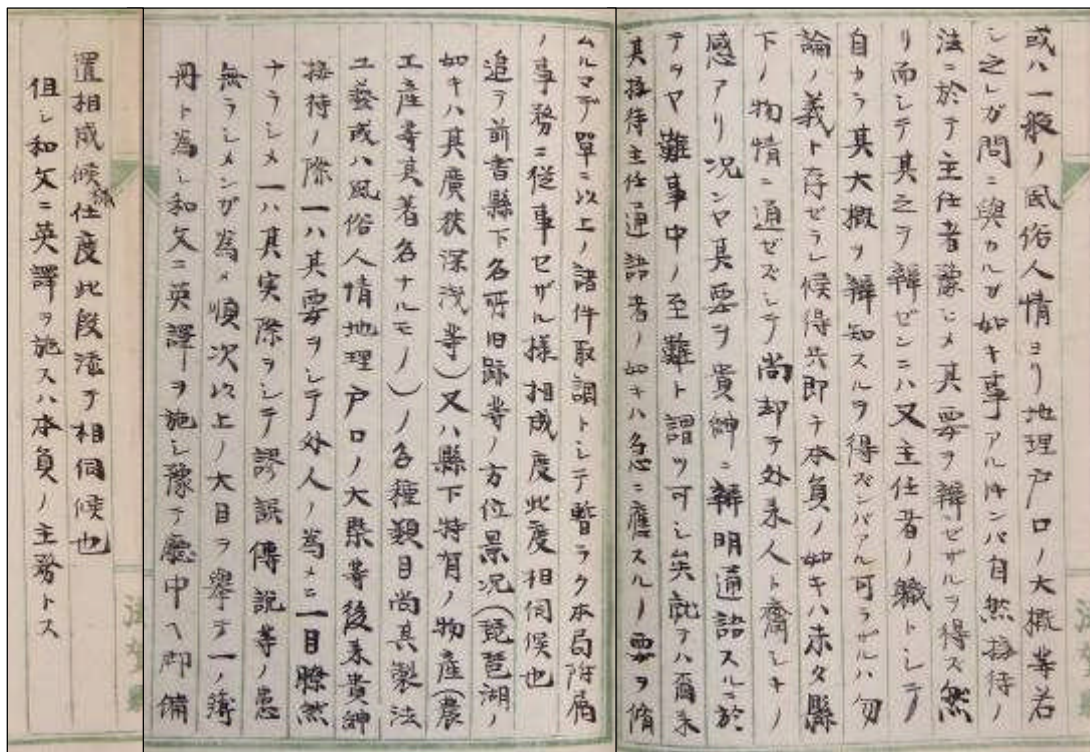 或ハ一般ノ民俗人情ヨリ地理戸口ノ大概等若
シ之レガ問ニ與カルガ如キ事アル片ンバ自然接待ノ
法ニ於テ主任者豫シメ其要ヲ辯ゼザルヲ得ズ然
リ而シテ其之ヲ辯ゼンニハ又主任者ノ職トシテ
自カラ其大概ヲ辯知スルヲ得ズンバアル可ラザルハ勿
論ノ義ト存ゼラレ候得共即チ本員ノ如キハ未タ縣
下ノ物情ニ通ゼズシテ尚却テ外来人ト齊シキノ
感アリ况ンヤ其要ヲ貴紳ニ辯明通語スルニ於
テヲヤ難事中ノ至難ト謂ツ可シ矣就テハ爾来
其接待主任通語者ノ如キハ急ニ應スルノ要ヲ脩
ムルマデ單ニ以上ノ諸件取調トシテ暫ラク本局附属
ノ事務ニ従事セザル様相成度此度相伺候也
追テ前書縣下名所旧跡等ノ方位景况(琵琶湖ノ
如キハ其廣狭深浅等)又ハ縣下特有ノ物産(農
工産等其著名ナルモノ)ノ各種類目尚其製法
工藝或ハ風俗人情地理戸口ノ大槩等後来貴紳
接待ノ際一ハ其要ヲシテ外人ノ為メニ一目瞭然
ナラシメ一ハ其実際ヲシテ謬誤傳説等ノ患
無ラシメンガ為メ順次以上ノ大目ヲ挙ケ一ノ簿
冊ト為シ和文ニ英譯ヲ施シ豫テ廳中ヘ即備
置相成候様仕度此段添テ相伺候也
但シ和文ニ英譯ヲ施スハ本員ノ主務トス